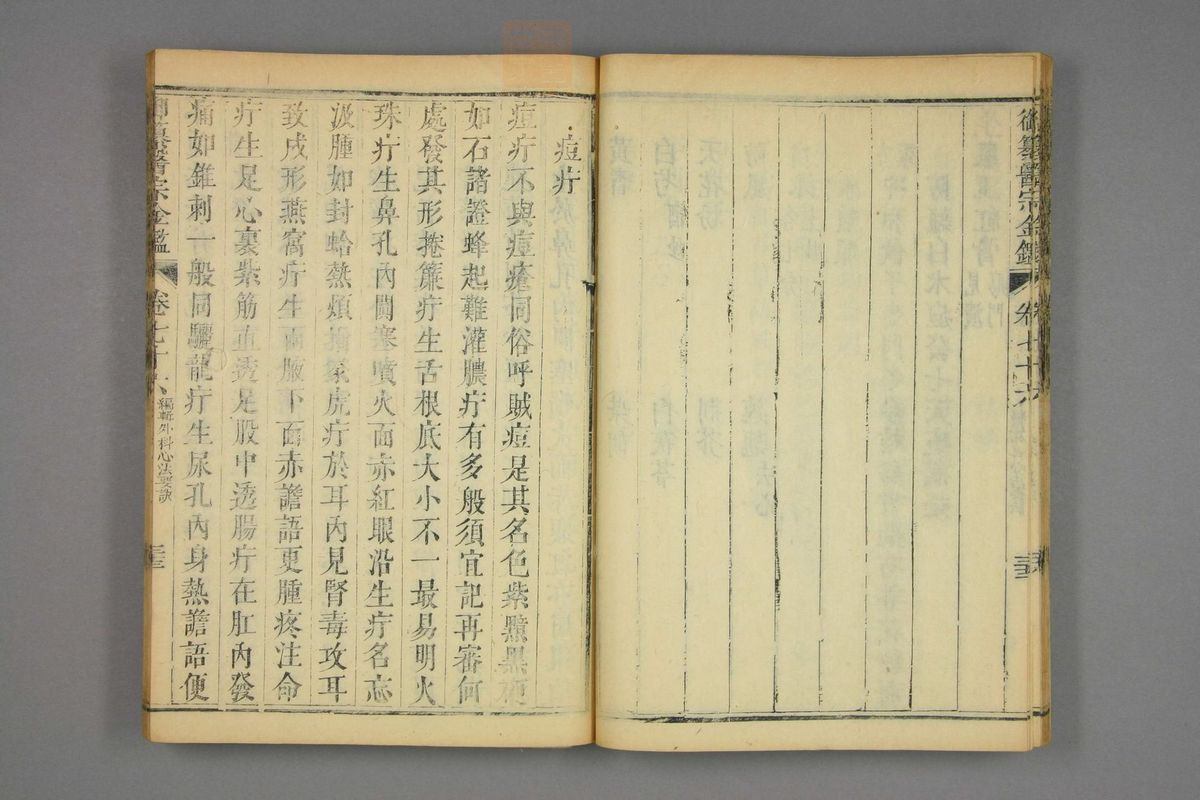 御纂醫宗金鑑 卷七十六 三十三
痘疔
痘疔不與痘瘡同俗呼賊痘是其名色紫黶黑硬
如石諸證蜂起難灌膿疔有多般須宜記再審何
處發其形捲簾疔生舌根底大小不一最易明火
珠疔生鼻孔內閉塞噴火面赤紅眼沿生疔名忘
汲腫如封蛤熱煩攻豕虎疔於耳內見腎毒攻耳
致成形燕窩疔生兩腋下面赤譫語更腫疼注命
疔生足心裏紫筋直透足股中透腸疔在肛內發
痛如錐刺一般同驪龍疔生尿孔內身熱譫語便
御纂醫宗金鑑 卷七十六 編輯外科心法要訣 三十三